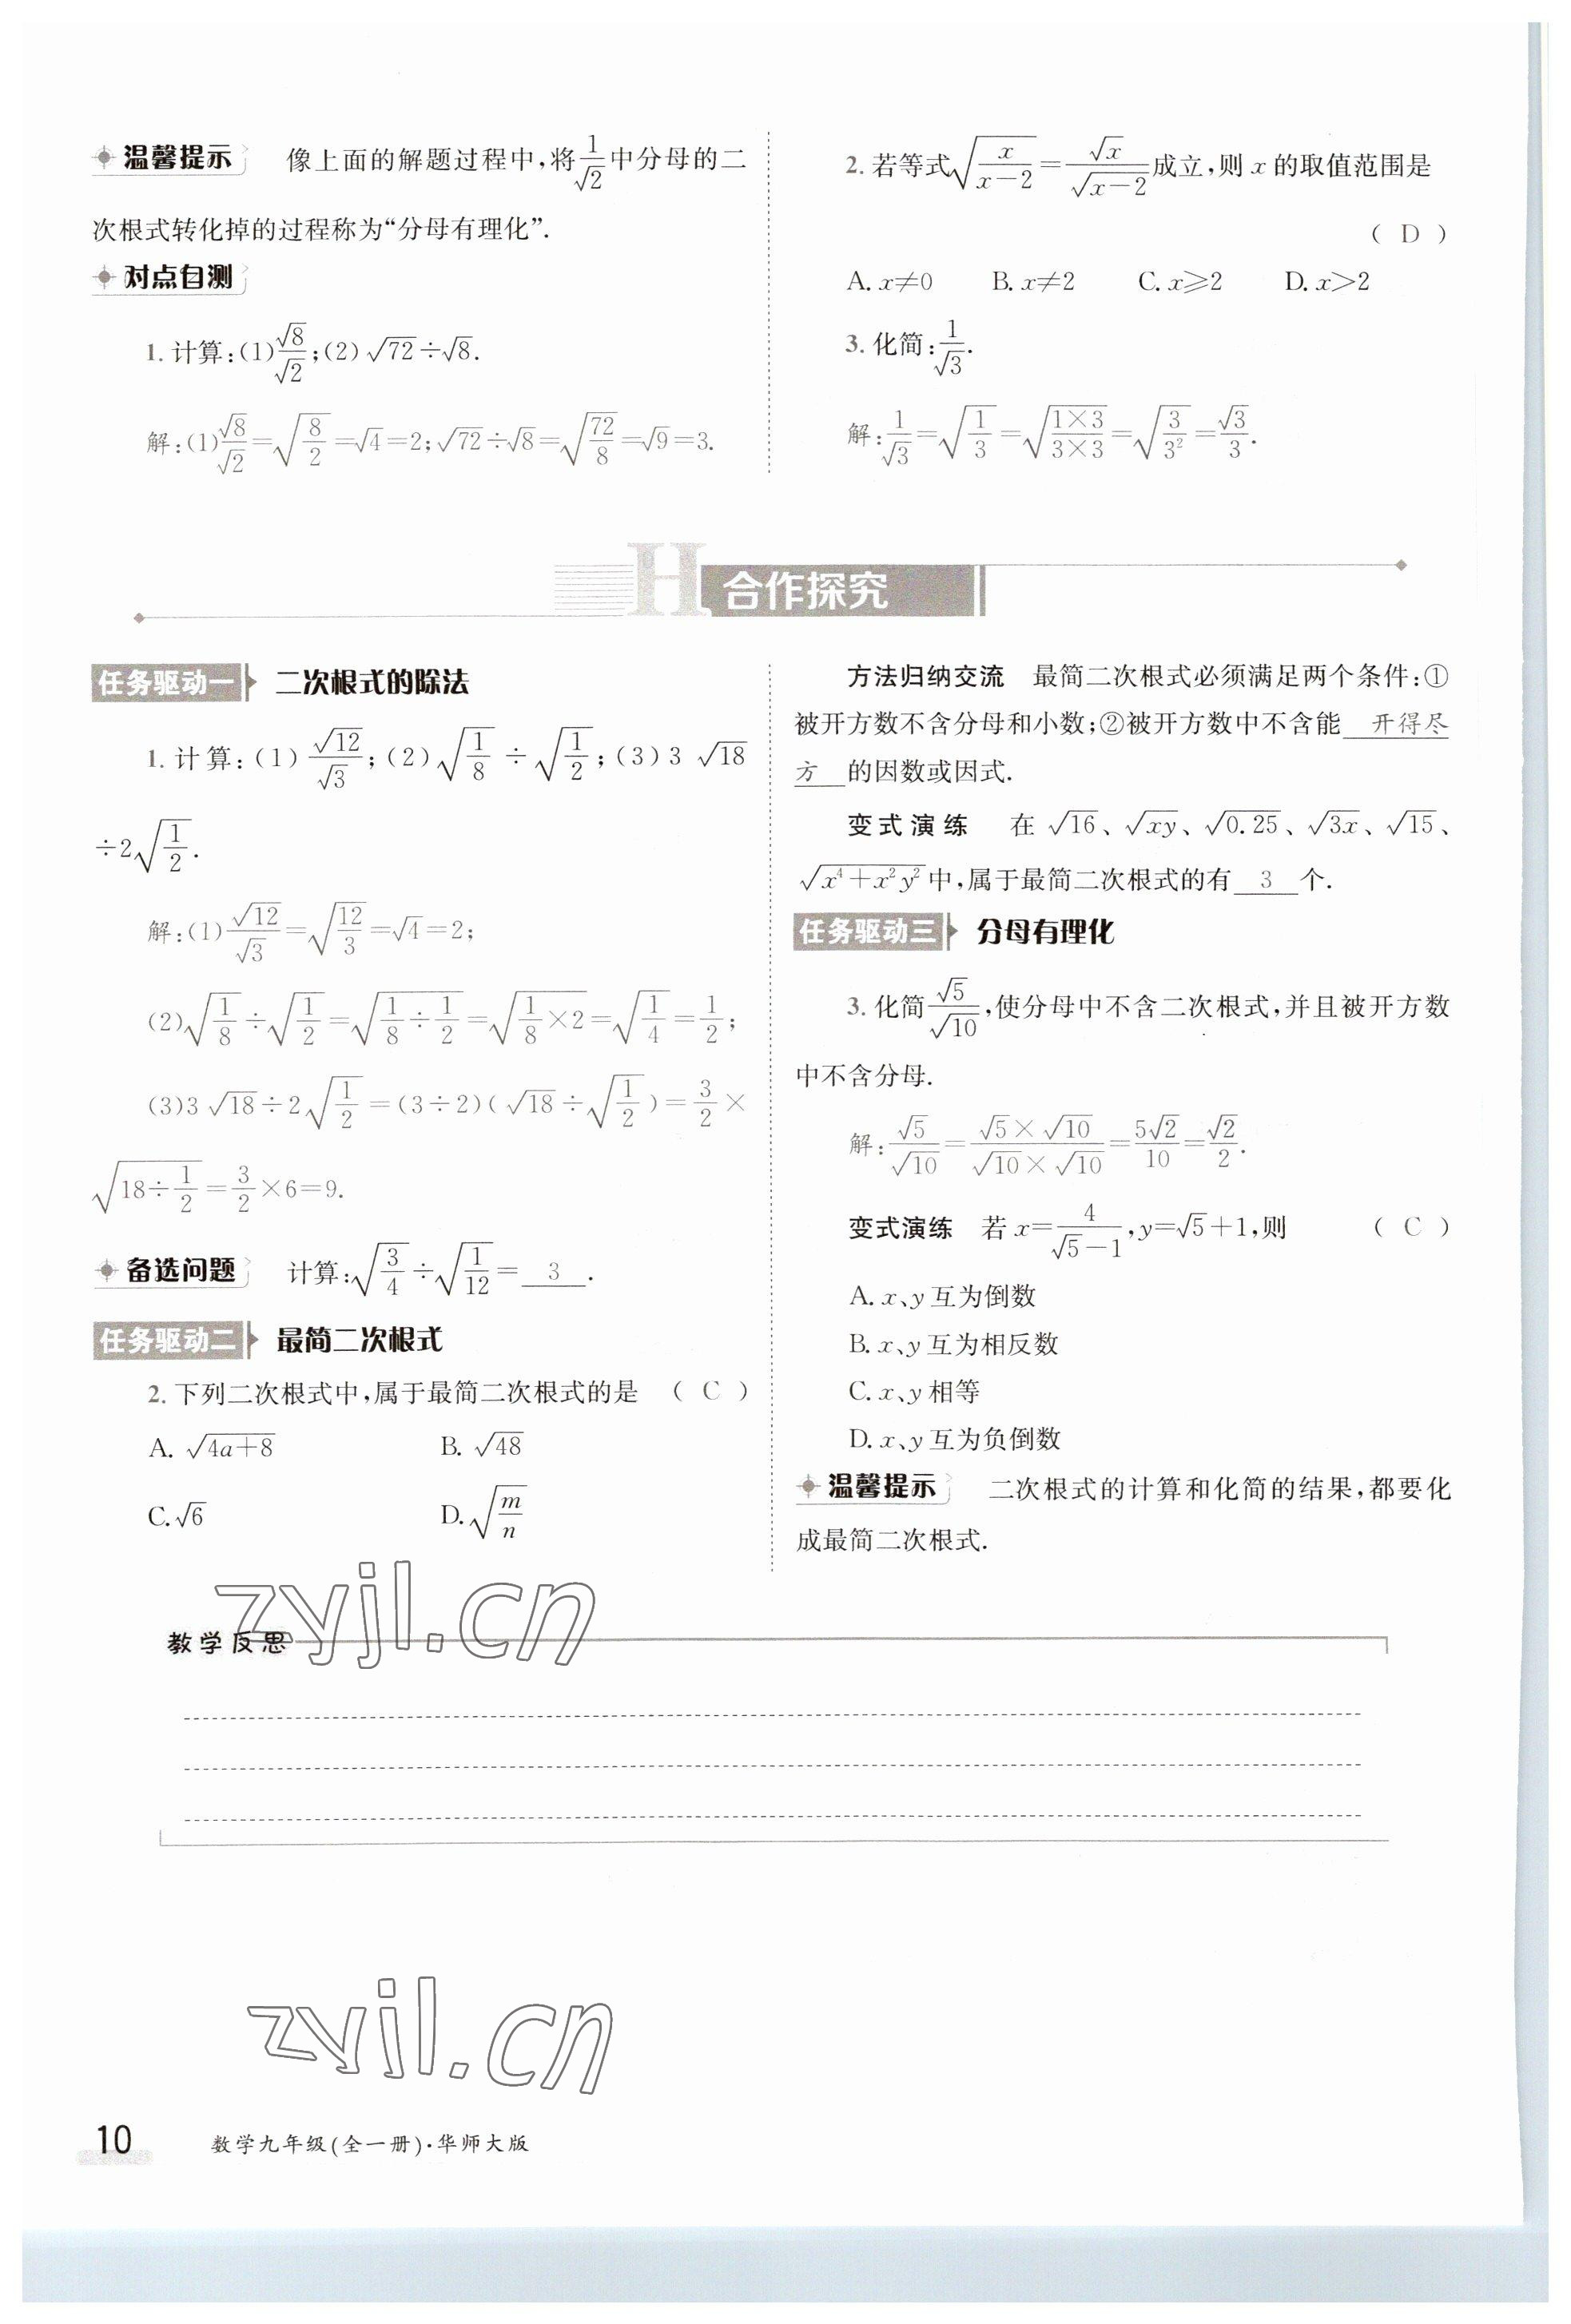 温馨提示 像上面的解题过程中,将1/√2中分母的二
次根式转化掉的过程称为“分母有理化”.
对点自测
1. 计算:(1)√8/√2;(2)√72÷√8.
解:(1)√8/√2=√(8/2)=√4=2;√72÷√8=√(72/8)=√9=3.
2. 若等式√(x/(x-2))=√x/√(x-2)成立,则 x 的取值范围是
( D )
A. x≠0 B. x≠2 C. x⩾2 D. x>2
3. 化简:1/√3.
解:1/√3=√(1/3)=√((1×3)/(3×3))=√(3/3²)=√3/3.
H 合作探究
任务驱动一 二次根式的除法
1. 计算:(1)√12/√3;(2)√(1/8)÷√(1/2);(3)3√18
÷2√(1/2).
解:(1)√12/√3=√(12/3)=√4=2;
(2)√(1/8)÷√(1/2)=√(1/8÷1/2)=√(1/8×2)=√(1/4)=1/2;
(3)3√18÷2√(1/2)=(3÷2)(√18÷√(1/2))=3/2×
√(18÷1/2)=3/2×6=9.
备选问题 计算:√(3/4)÷√(1/12)= 3 .
任务驱动二 最简二次根式
2. 下列二次根式中,属于最简二次根式的是 ( C )
A. √(4a+8) B. √48
C. √6 D. √(m/n)
方法归纳交流 最简二次根式必须满足两个条件:①
被开方数不含分母和小数;②被开方数中不含能 开得尽
方 的因数或因式.
变式演练 在 √16、√(xy)、√0.25、√(3x)、√15、
√(x⁴+x²y²)中,属于最简二次根式的有 3 个.
任务驱动三 分母有理化
3. 化简√5/√10,使分母中不含二次根式,并且被开方数
中不含分母.
解:√5/√10=(√5×√10)/(√10×√10)=5√2/10=√2/2.
变式演练 若 x=4/(√5-1),y=√5+1,则 ( C )
A. x、y 互为倒数
B. x、y 互为相反数
C. x、y 相等
D. x、y 互为负倒数
温馨提示 二次根式的计算和化简的结果,都要化
成最简二次根式.
zyjl.cn
教学反思
zyjl.cn
10 数学九年级(全一册)·华师大版